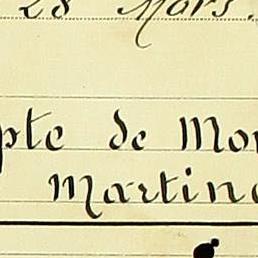 28 Mars.
pte de Mon
Martine